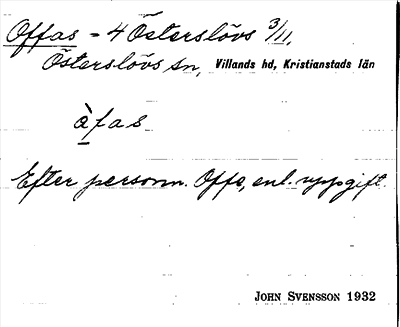 Offas - 4 Österslövs 3/11.
Österslövs sn, Villands hd, Kristianstads län
àfas
Efter personn. Offe, enl. uppgift.
JOHN SVENSSON 1932